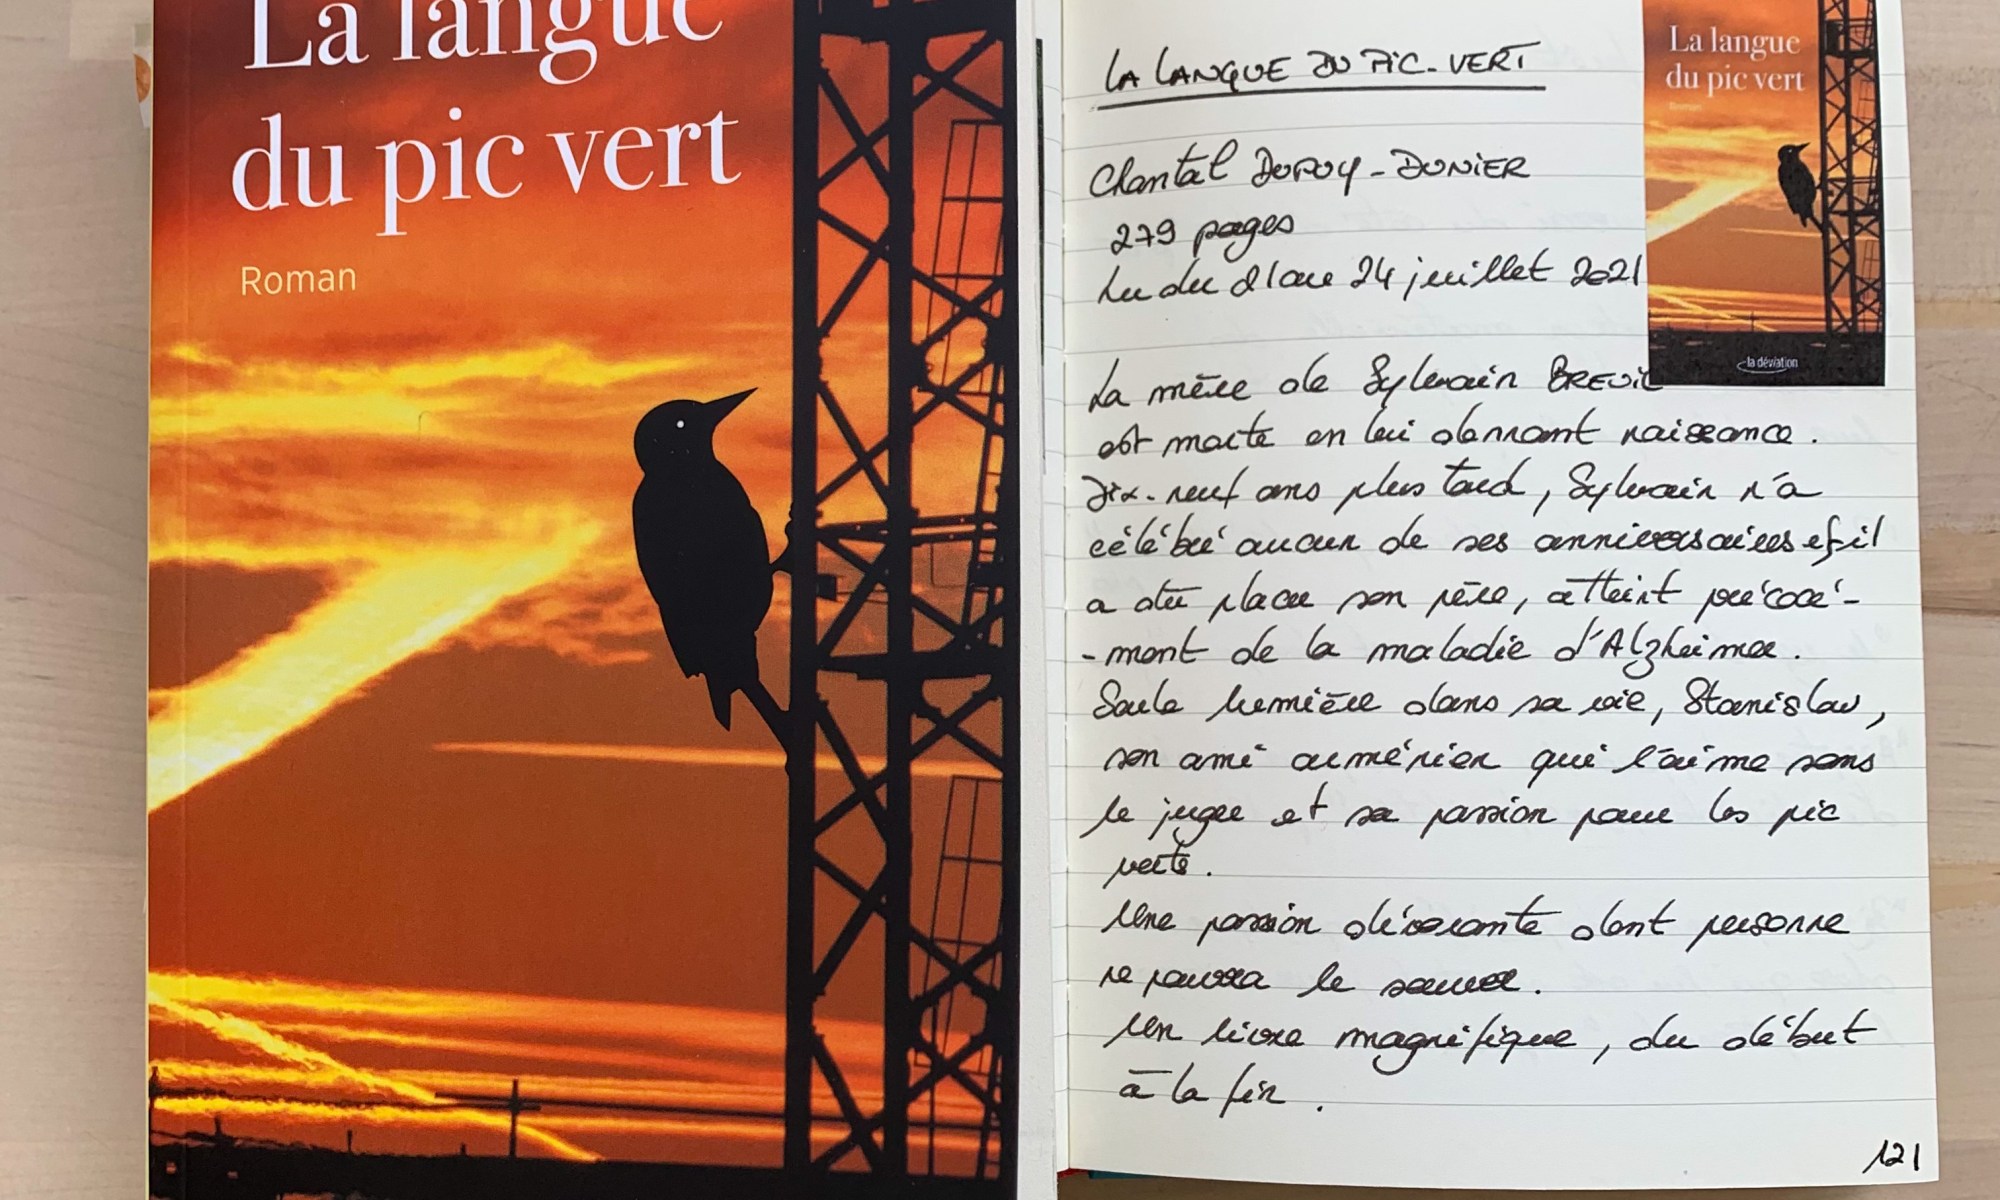 La langue
du pic vert
Roman
LA LANGUE DU PIC-VERT
Chantal DUPUY-DUNIER
279 pages
Lu du 21 au 24 juillet 2021
La mère de Sylvain BREUIL
est morte en lui donnant naissance.
Dix-neuf ans plus tard, Sylvain n'a
célébré aucun de ses anniversaires et il
a dû placer son père, atteint précocé-
-ment de la maladie d'Alzheimer.
Seule lumière dans sa vie, Stanislav,
son ami arménien qui l'aime sans
le juger et sa passion pour les pic
verts.
Une passion dévorante dont personne
ne pourra le sauver.
Un livre magnifique, du début
à la fin.
121
La langue
du pic vert
Roman
la déviation